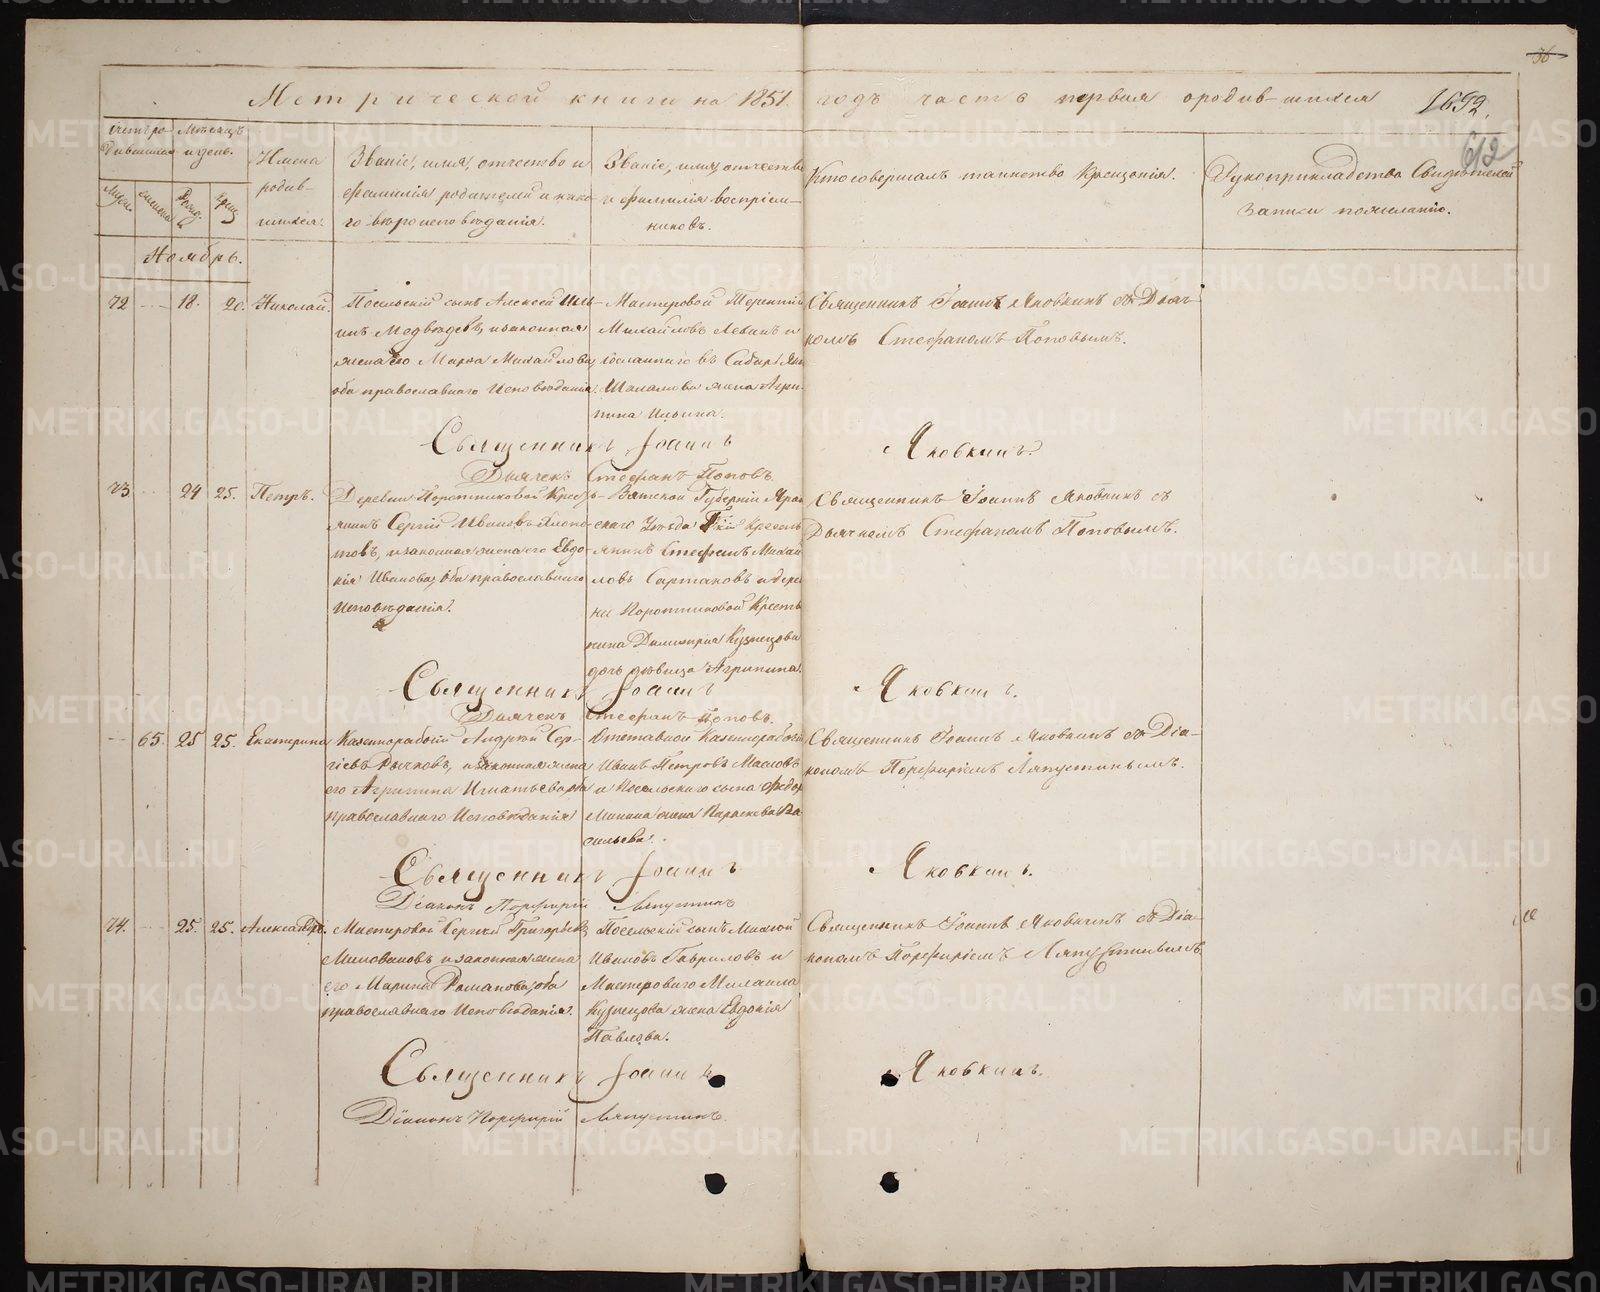 36
Метрической книги на 1851. годъ часть первая ородив-шихся 1692.
612
Счетъ ро- Мѣсяцъ
дившихся и день.
Имена
родив-
шихся.
Званіе, имя, отчество и
фамилія родителей и како-
го вѣроисповѣданія.
Званіе, имя, отчество
и фамилія воспріем-
никовъ.
Кто совершалъ таинство Крещенія.
Рукоприкладство Свидѣтелей
записи пожеланію.
Ноябрь.
72 18. 20. Николай.
Посельскій сынъ Алексей Иль-
инъ Медвѣдевъ, и законная
жена его Марѳа Михайлова,
оба православнаго Исповѣданія.
Мастеровой Терентій
Михайловъ и
сосланнаго въ Сибирь
жена Агри-
пина Ильина.
Священникъ Іоаннъ Яковкинъ съ Дьяч-
комъ Стефаномъ Поповымъ.
Священникъ Іоаннъ Яковкинъ.
Дьячекъ Стефанъ Поповъ.
73 24 25. Петръ.
Деревни Коротниковой Крест-
янинъ Сергій Ивановъ
и законная жена его Евдо-
кія Иванова, оба православнаго
Исповѣданія.
Вятской Губерніи Яран-
скаго Уѣзда Кресть-
янинъ Стефанъ Михай-
ловъ Сартаковъ и дерев-
ни Коротниковой Кресть-
нина Димитрія Кузнецова
дочь дѣвица Агрипина.
Священникъ Іоаннъ Яковкинъ съ
Дьячкомъ Стефаномъ Поповымъ.
Священникъ Іоаннъ Яковкинъ.
Дьячекъ Стефанъ Поповъ.
65. 25 25. Екатерина
Казеннорабочій Андрей Сер-
гіевъ Рычковъ, и законная жена
его Агрипина Игнатьева, оба
православнаго Исповѣданія
Отставной Казеннорабочій
Иванъ Петровъ Масловъ
и Посельскаго сына Ѳедора
Минина жена Параскева Ва-
сильева.
Священникъ Іоаннъ Яковкинъ съ Діа-
кономъ Порфиріемъ Ляпустинымъ.
Священникъ Іоаннъ Яковкинъ.
Діаконъ Порфирій Ляпустинъ
74. 25. 25. Александръ.
Мастеровой Сергѣй Григорьевъ
Миловановъ и законная жена
его Марина Романова, оба
православнаго Исповѣданія.
Посельскій сынъ
Ивановъ Гавриловъ и
Мастероваго Михаила
Кузнецова жена Евдокія
Павлова.
Священникъ Іоаннъ Яковкинъ съ Діа-
кономъ Порфиріемъ Ляпустинымъ
Священникъ Іоаннъ Яковкинъ.
Діаконъ Порфирій Ляпустинъ.
METRIKI.GASO-URAL.RU